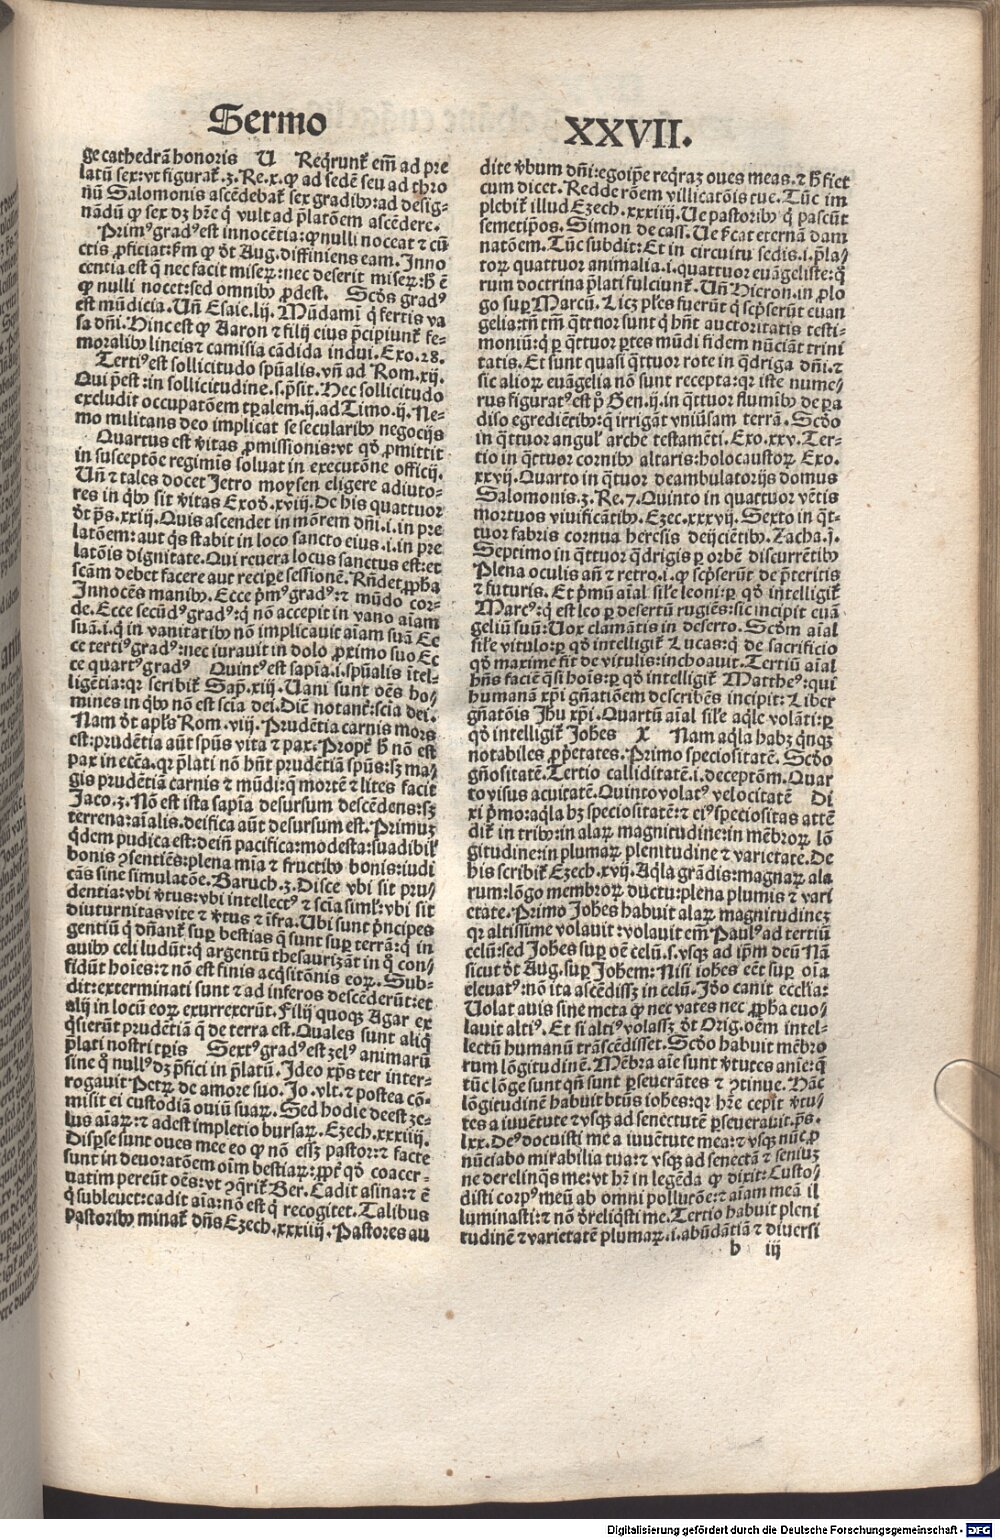 Sermo
XXVII.
ge cathedrã honoris U Reqrunt᷑ em̃ ad pre
latũ sex: vt figurat᷑ .3. Re.x. ꝙ ad sedẽ seu ad thro
nũ Salomonis ascẽdebat᷑ sex gradibꝰ: ad desig-
nãdũ ꝙ sex dꝫ hr̃e q̇ vult ad p̃latõem ascẽdere.
Primꝰ gradꝰ est innocẽtia: ꝙ nulli noceat ⁊ cũ
ctis ꝓficiat: ẜm ꝙ dt̃ Aug. diffiniens eam. Inno
centia est q̃ nec facit miseꝝ: nec deserit miseꝝ: hͦ ẽ
ꝙ nulli nocet: sed omnibꝰ ꝓdest. Scd̃s gradꝰ
est mũdicia. Uñ Esaie.lij. Mũdamĩ q̇ fertis va
sa dñi. Hinc est ꝙ Aaron ⁊ filij eius p̃cipiunt᷑ fe-
moralibꝰ lineis ⁊ camisia cãdida indui. Exo.28.
Tertiꝰ est sollicitudo spũalis. vñ ad Rom.xij.
Qui p̃est: in sollicitudine .s. p̃sit. Hec sollicitudo
excludit occupatõem tꝑalem.ij. ad Timo.ij. Ne-
mo militans deo implicat se secularibꝰ negocijs
Quartus est v̾itas ꝓmissionis: vt qd̾ ꝓmittit
in susceptõe regimĩs soluat in executõne officij.
Uñ ⁊ tales docet Jetro moysen eligere adiuto-
res in qͥbꝰ sit v̾itas Exod̾.xviij. De his quattuor
dt̃ p̃s.xxiij. Quis ascendet in mõrem dñi .i. in pre
latõem: aut q̇s stabit in loco sancto eius .i. in pre
latõis dignitate. Qui revera locus sanctus est: et
scãm debet facere aut recipe̾ sessionẽ. Rñdet ꝓph̃a
Innocẽs manibꝰ. Ecce p̃mꝰ gradꝰ: ⁊ mũdo cor-
de. Ecce secũdꝰ gradꝰ: q̇ nõ accepit in vano aĩam
suã .i. q̇ in vanitatibꝰ nõ implicauit aĩam suã Ec
ce tertiꝰ gradꝰ: nec iurauit in dolo ꝓximo suo Ec
ce quartꝰ gradꝰ Quintꝰ est sapĩa .i. spũalis ĩtel-
ligẽtia: qꝛ scribit᷑ Sap̃.xiij. Uani sunt oẽs ho/
mines in qͥbꝰ nõ est scĩa dei. Diẽ notant̾: scĩa dei.
Nam dt̃ apl̃s Rom.viij. Prudẽtia carnis mors
est: prudẽtia aũt spũs vita ⁊ pax. Propt̾ hͦ nõ est
pax in ecc̃a. qꝛ p̃lati nõ hñt prudẽtiã spũs: sꝫ ma/
gis prudẽtiã carnis ⁊ mũdi: q̃ mortẽ ⁊ lites facit
Jaco.3. Nõ est ista sapĩa desursum descẽdens: sꝫ
terrena: aĩalis. deifica aũt desursum est. Primuꝫ
q̇dem pudica est: deĩn̄ pacifica: modesta: suadibil̾
bonis ꝯsentiẽs: plena mĩa ⁊ fructibꝰ bonis: iudi
cãs sine simulatõe. Baruch.3. Disce vbi sit pru/
dentia: vbi v̾tus: vbi intellectꝰ ⁊ scĩa siml̾: vbi sit
diuturnitas vite ⁊ v̾tus ⁊ ĩfra. Ubi sunt p̃ncipes
gentiũ q̇ dñant᷑ suꝑ bestias q̃ sunt suꝑ terrã: q̇ in
auibꝰ celi ludũt: q̇ argentũ thesaurizãt in q̊ con/
fidũt hoĩes: ⁊ nõ est finis acq̇sitõnis eoꝝ. Sub-
dit: exterminati sunt ⁊ ad inferos descẽderũt: et
alij in locũ eoꝝ exurrexerũt. Filij quoqꝫ Agar ex
q̇sierũt prudẽtiã q̃ de terra est. Quales sunt aliq̇
p̃lati nostri tꝑis Sextꝰ gradꝰ est zelꝰ animarũ
sine q̊ nullꝰ dꝫ p̃fici in p̃latũ. Ideo xp̃s ter inter-
rogauit Petꝝ de amore suo. Jo.vlt. ⁊ postea cõ-
misit ei custodiã ouiũ suaꝝ. Sed hodie deest ze-
lus aĩaꝝ: ⁊ adest impletio bursaꝝ. Ezech.xxxiiij.
Disꝑse sunt oues mee eo ꝙ nõ essꝫ pastor: ⁊ facte
sunt in deuoratõem oĩm bestiaꝝ: ꝓpt̾ qd̾ coacer-
uatim pereũt oẽs: vt ꝯq̇rit᷑ Ber. Cadit asina: ⁊ ẽ
q̇ subleuet: cadit aĩa: nõ est q̇ recogitet. Talibus
Pastoribꝰ minat᷑ dñs Ezech.xxxiiij. Pastores au
dite v̾bum dñi: ego ip̃e reqͥraꝫ oues meas. ⁊ hͦ fiet
cum dicet. Redde rõem villicatõis tue. Tũc im
plebit᷑ illud Ezech.xxxiiij. Ue pastoribꝰ q̇ pascũt
semetip̃os. Simon de cass. Ue ẜcat eternã dam
natõem. Tũc subdit: Et in circuitu sedis .i. p̃la/
toꝝ quattuor animalia .i. quattuor euãgeliste: q̃
rum doctrina p̃lati fulciunt᷑. Uñ Hieron. in ꝓlo
go suꝑ Marcũ. Licꝫ pl̃es fuerũt q̇ sc̾pserũt euan
gelia: tñ tm̃ q̃ttuor sunt q̇ hñt auctoritatis testi-
moniũ: q̇ ꝑ q̃ttuor ꝑtes mũdi fidem nũciãt trini
tatis. Et sunt quasi q̃ttuor rote in q̃driga dñi: ⁊
sic alioꝝ euãgelia nõ sunt recepta: qꝛ iste nume-
rus figuratꝰ est p̾ Gen.ij. in q̃ttuor flumĩbꝰ de ꝑa
diso egrediẽtibꝰ: q̇ irrigãt vniũsam terrã. Scd̾o
in q̃ttuor angul̾ arche testamẽti. Exo.xxv. Ter-
tio in q̃ttuor cornibꝰ altaris: holocaustoꝝ Exo.
xxvij. Quarto in q̃tuor deambulatorijs domus
Salomonis.3. Re.7. Quinto in quattuor vẽtis
mortuos viuificãtibꝰ. Ezec.xxxvij. Sexto in q̃t-
tuor fabris cornua heresis deijciẽtibꝰ. Zacha.j.
Septimo in q̃ttuor q̃drigis ꝑ orbẽ discurrẽtibꝰ
Plena oculis añ ⁊ retro .i. ꝙ sc̾pserũt de p̃teritis
⁊ futuris. Et p̃mũ aĩal sil̾e leoni: ꝑ qd̾ intelligit᷑
Marcꝰ: q̇ est leo ꝑ desertũ rugiẽs: sic incipit euã
geliũ suũ: Uox clamãtis in deserto. Scd̾m aĩal
sil̾e vitulo: ꝑ qd̾ intelligit᷑ Lucas: q̇ de sacrificio
qd̾ maxime fit de vitulis: inchoauit. Tertiũ aĩal
hñs faciẽ q̃si hoĩs: ꝑ qd̾ intelligit᷑ Mattheꝰ: qui
humanã xp̃i gñatiõem describẽs incipit: Liber
gñatõis Jh̾u xp̃i. Quartũ aĩal sil̾e aq̇le volãti: ꝑ
qd̾ intelligit᷑ Joh̃es X Nam aq̇la habꝫ q̇nqꝫ
notabiles ꝓp̾etates. Primo speciositatẽ. Scd̾o
gñositatẽ. Tertio calliditatẽ .i. deceptõm. Quar
to visus acuitatẽ. Quinto volatꝰ velocitatẽ Di
xi p̃mo: aq̇la hꝫ speciositatẽ: ⁊ eiꝰ speciositas attẽ
dit᷑ in tribꝰ: in alaꝝ magnitudine: in mẽbroꝝ lõ
gitudine: in plumaꝝ plenitudine ⁊ varietate. De
his scribit᷑ Ezech.xvij. Aq̇la grãdis: magnaꝝ ala
rum: lõgo membroꝝ ductu: plena plumis ⁊ vari
etate. Primo Joh̃es habuit alaꝝ magnitudineꝫ
qꝛ altissime volauit: volauit em̃ Paulꝰ ad tertiũ
celũ: sed Joh̃es suꝑ oẽ celũ .s. vsqꝫ ad ip̃m deũ Nã
sicut dt̃ Aug. suꝑ Joh̃em: Nisi ioh̃es eẽt suꝑ oĩa
eleuatꝰ: nõ ita ascẽdissꝫ in celũ. Id̾o canit ecclĩa:
Uolat auis sine meta q̊ nec vates nec ꝓph̃a euo/
lauit altiꝰ. Et si altiꝰ volassꝫ dt̃ Orig. oẽm intel-
lectũ humanũ trãscẽdisset. Scd̾o habuit mẽbro
rum lõgitudinẽ. Mẽbra aĩe sunt v̾tutes anime: q̃
tũc lõge sunt qñ sunt ꝑseuerãtes ⁊ ꝯtinue. Hãc
lõgitudinẽ habuit btũs ioh̃es: qꝛ hr̃e cepit v̾tu/
tes a iuuẽtute ⁊ vsqꝫ ad senectutẽ ꝑseuerauit. p̃s.
lxx. Deꝰ docuisti me a iuuẽtute mea: ⁊ vsqꝫ nũc ꝓ
nũciabo mirabilia tua: ⁊ vsqꝫ ad senectã ⁊ seniuꝫ
ne derelinq̃s me: vt hr̃ in legẽda ꝙ dixit: Custo/
disti corpꝰ meũ ab omni pollutõe: ⁊ aĩam meã il
luminasti: ⁊ nõ d̾reliq̇sti me. Tertio habuit pleni
tudinẽ ⁊ varietatẽ plumaꝝ .i. abũdãtiã ⁊ diuersi
b iij
Digitalisierung gefördert durch die Deutsche Forschungsgemeinschaft - DFG